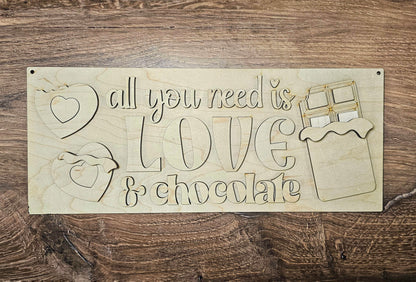 all you need is
LOVE
& chocolate